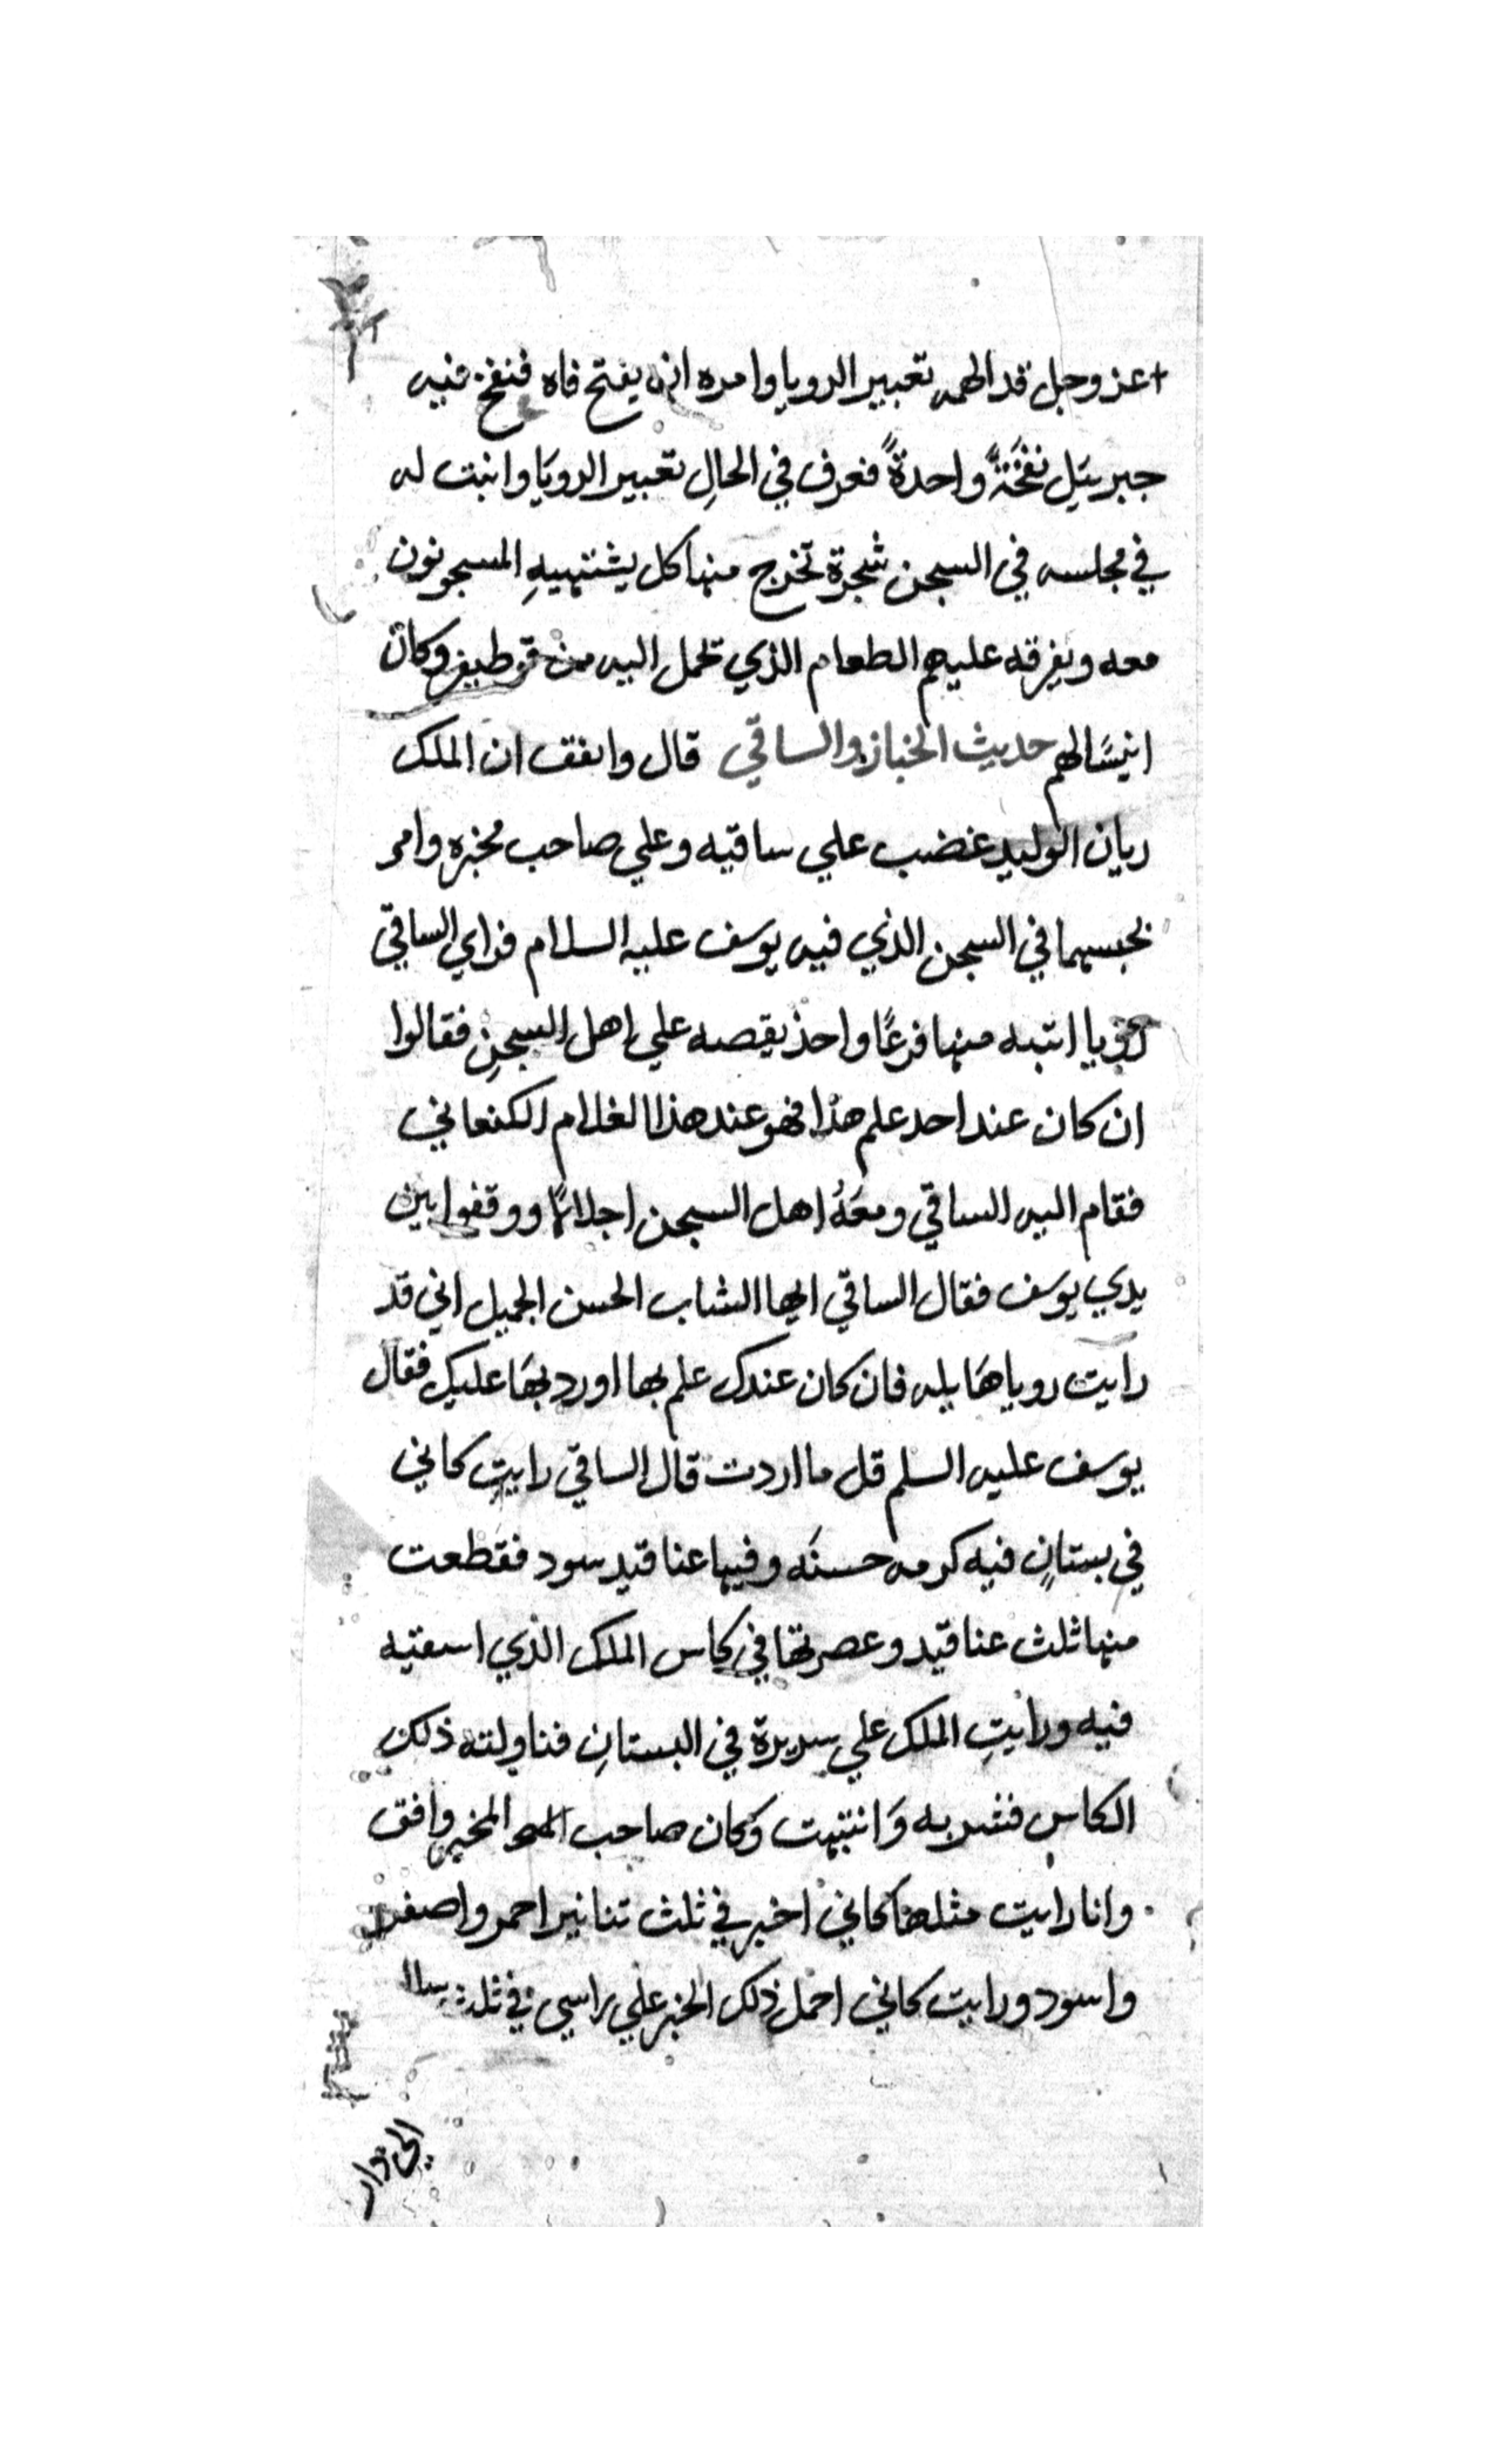 عز وجل قد الهمه تعبير الرويا وامره ان يفتح فاه فنفخ فيه
جبرييل نفخةً واحدةً فعرف في الحالِ تعبير الرويَا وانبت له
في مجلسه في السجن شجرة تخرج منها كل يشتهيهِ المسجونون
معه ويفرقه عليهم الطعام الذي تحمل اليه من قوطيفر وكان
انيسًا لهم حديث الخباز والساقي قال واتفق ان الملك
ريان الوليد غضب علي ساقيه وعلي صاحب مخبزه وامر
بحبسهما في السجن الذي فيه يوسف عليه السلام فراي الساقي
رويا انتبه منها فزعًا واخذ يقصه علي اهل السجنِ فقالوا
ان كان عند احد علم هذا فهو عند هذا الغلام الكنعاني
فقام اليه الساقي ومعَهُ اهل السجن اجلالًا ووقفوا بين
يدي يوسف فقال الساقي ايها الشاب الحسن الجميل اني قد
رايت رويا هَايله فان كان عندك علم بها اوردبهَا عليك فقال
يوسف عليه السلم قل ما اردت قال الساقي رايتِ كاني
في بستانٍ فيه كرمه حسنَه وفيها عناقيد سود فقطعت
منها ثلث عناقيد وعصرتها في كاس الملك الذي اسقيه
فيه ورايتِ الملك علي سريرة في البستانِ فناولته ذلك
الكاس فشربه وَانتبهت وكان صاحب المخبز وافق
وانا رايت مثلها كاني اخبز في ثلث تنانير احمر واصفر
واسود ورايت كاني احمل ذلك الخبز علي راسي في ثلث